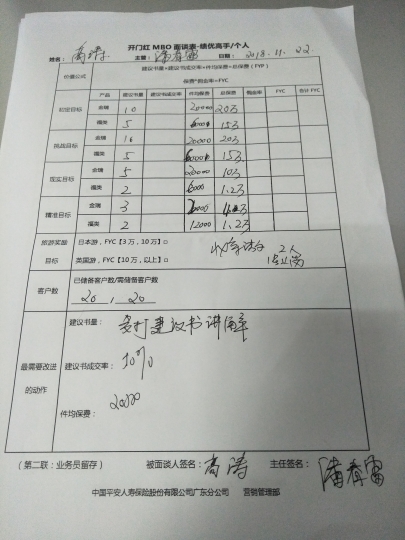 开门红 MBO 面谈表-绩优高手/个人
姓名: 高涛 主管: 潘春雷 日期: 2018.11.22
价值公式 建议书量*建议书成交率*件均保费=总保费(FYP)
保费*佣金率=FYC
产品 建议书量 建议书成交率 件均保费 总保费 佣金率 FYC 合计 FYC
初定目标 金瑞 10 20000 20万
福类 5
挑战目标 金瑞 16 20000 20万
福类 5 15万
现实目标 金瑞 5 20000 10万
福类 2 6000 1.2万
精准目标 金瑞 3
福类 2 12000 1.2万
旅游奖励 日本游,FYC【3万,10万】□
目标 美国游,FYC【10万,以上】□
2人
客户数 已储备客户数/需储备客户数
20 , 20
最需要改进的动作
建议书量: 多打建议书讲解
建议书成交率: 10%
件均保费: 20000
(第二联:业务员留存) 被面谈人签名: 高涛 主任签名: 潘春雷
中国平安人寿保险股份有限公司广东分公司 营销管理部